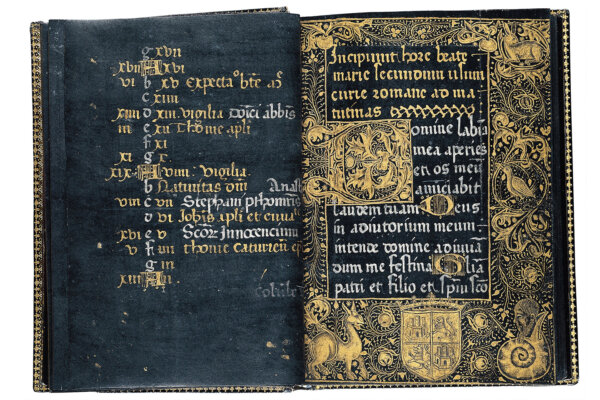 g xvii
xvii A xvi
vi b xv Expecta° bte
c xiiii
xiiii d xiii vigilia
iii e xii Thome apli
f xi
xi g x
xix A viiii vigilia
b Nativitas
viii c vii Stephani
d vi Johis apli et
xvi e v Scor Innocencium
v f iiii thome
g iii
xiii A ii
Incipiunt hore beate
marie secundum usum
curie romane ad ma
tutinas
Domine labia
mea aperies
et os meū
anūciabit
laudem tuam Deus
in adiutorium meum
intende domine ad iuuā
dum me festina Glia
patri et filio et spiui sco